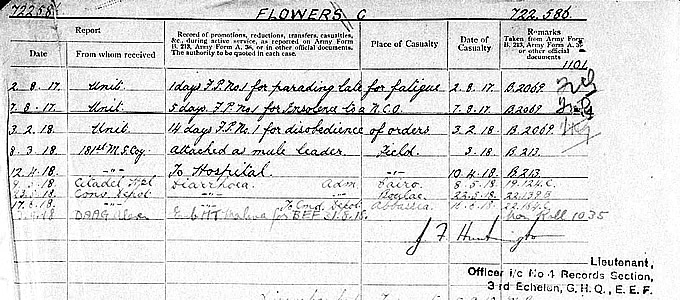 72258 FLOWERS C 722.586.
Report
Record of promotions, reductions, transfers, casualties, &c., during active service, as reported on Army Form B. 213, Army Form A. 36, or in other official documents. The authority to be quoted in each case.
Place of Casualty
Date of Casualty
Remarks
Taken from Army Form B. 213, Army Form A. 36 or other official documents
Date From whom received
1101
2.8.17. Unit. 1 days F.P. No 1 for parading late for fatigue 2.8.17. B.2069.
7.8.17. Unit. 5 days F.P. No 1 for Insolence to a N.C.O. 7.8.17. B.2069.
3.2.18. Unit 14 days F.P. No. 1 for disobedience of orders 3.2.18. B.2069.
8.3.18. 181st M.G. Coy. Attached as mule leader. Field. 3.18. B.213.
12.4.18. -"- To Hospital. -"- 10.4.18. B.213
Citadel Hpl Diarrhoea. Adm. Cairo. 8.5.18. 19.124.C.
Conv. Depot -"- Boulac 22.5.18
17.6.18. -"- To Cmd. Depot. Abbassia
DAAG for BEF 21.6.18. Nom Roll 1035
J F Huntington
Lieutenant,
Officer i/c No 4 Records Section,
3rd Echelon, G.H.Q., E.E.F.